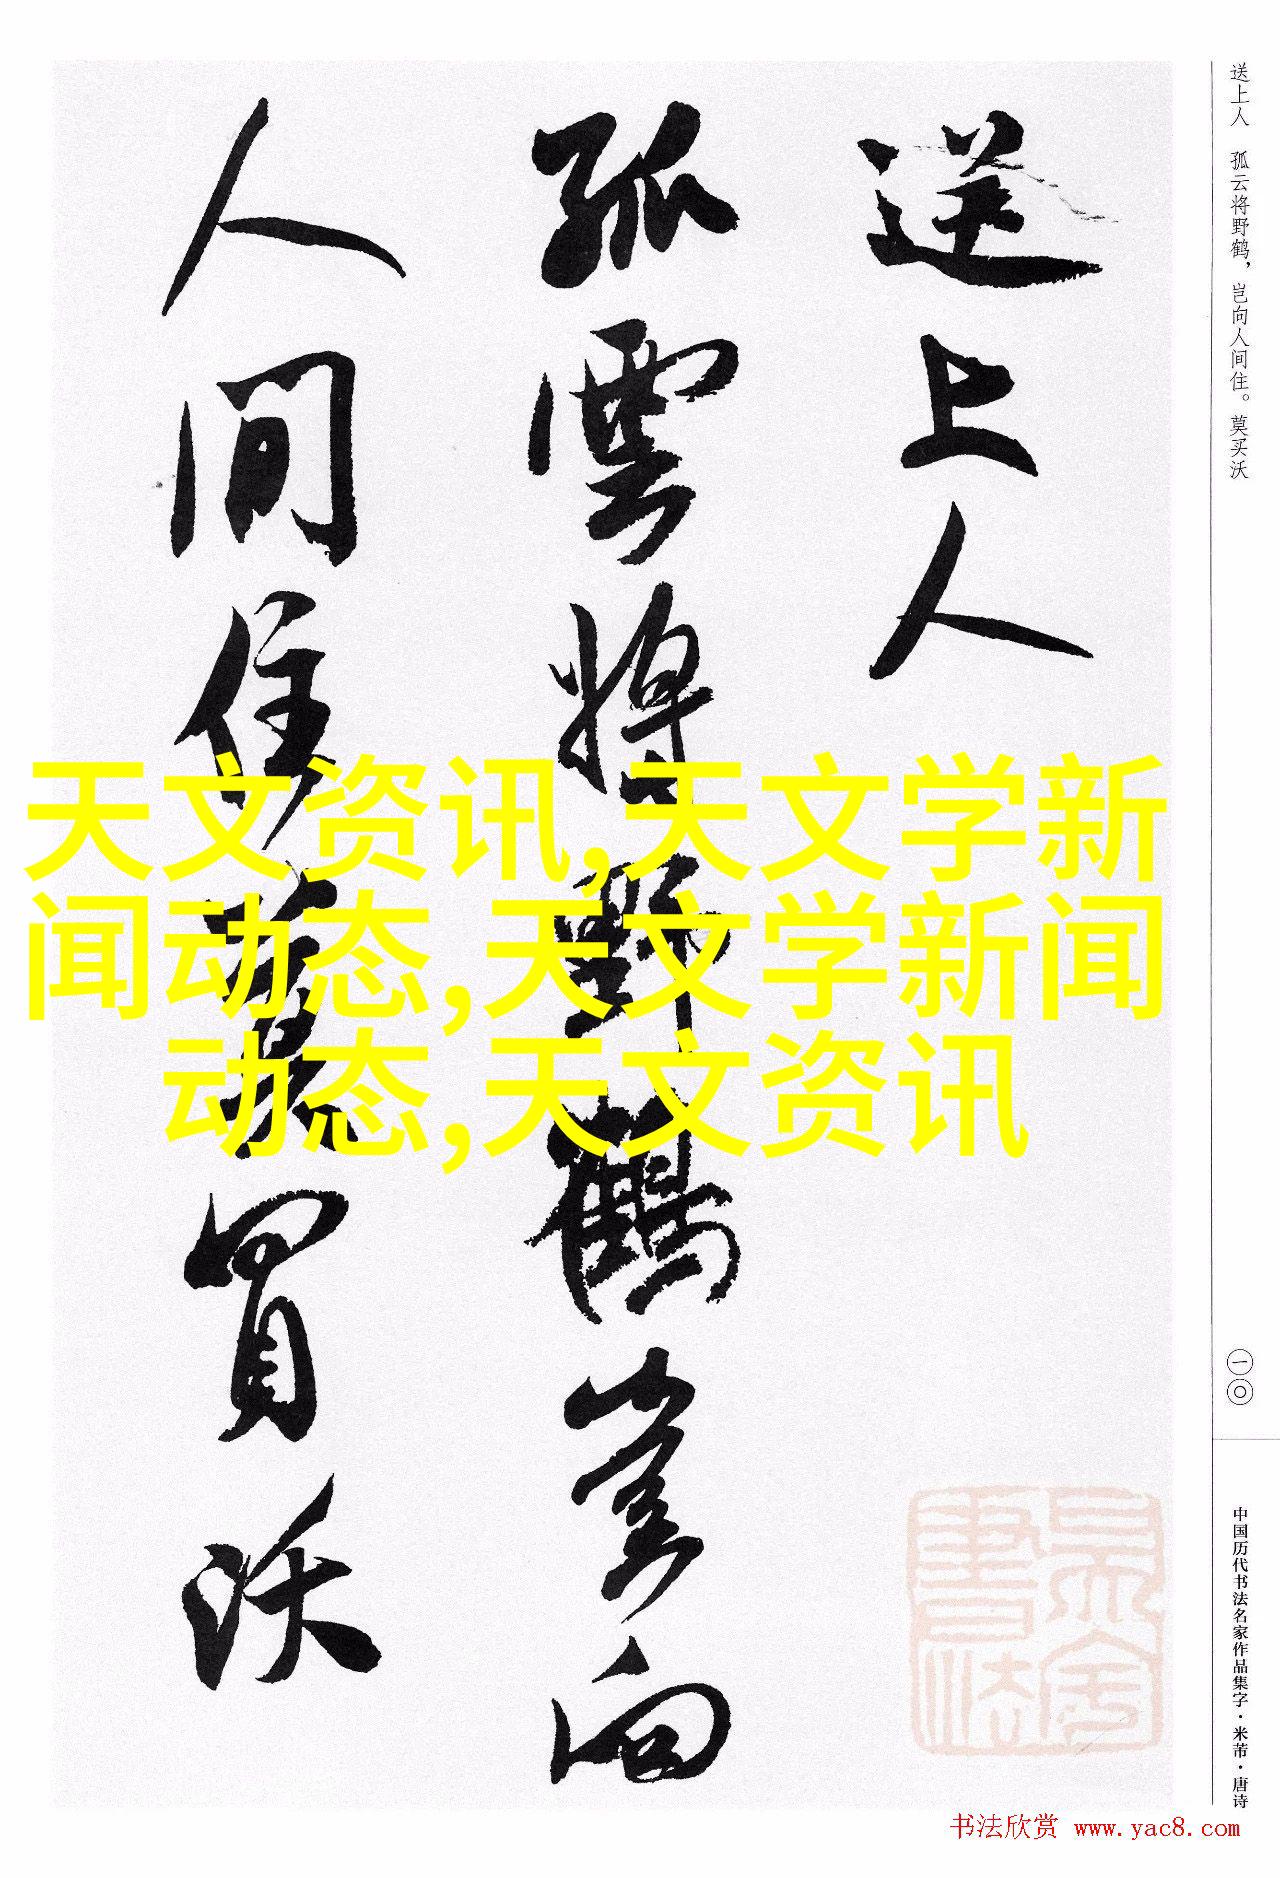 送上人
孤雲將野鶴豈向
人间住莫買沃
天文资讯,天文学新
闻动态,天文学新闻
动态,天文资讯
送上人 孤云将野鹤，岂向人间住。莫买沃
一〇
中国历代书法名家作品集字·米芾·唐诗
书法欣赏 www.yac8.com